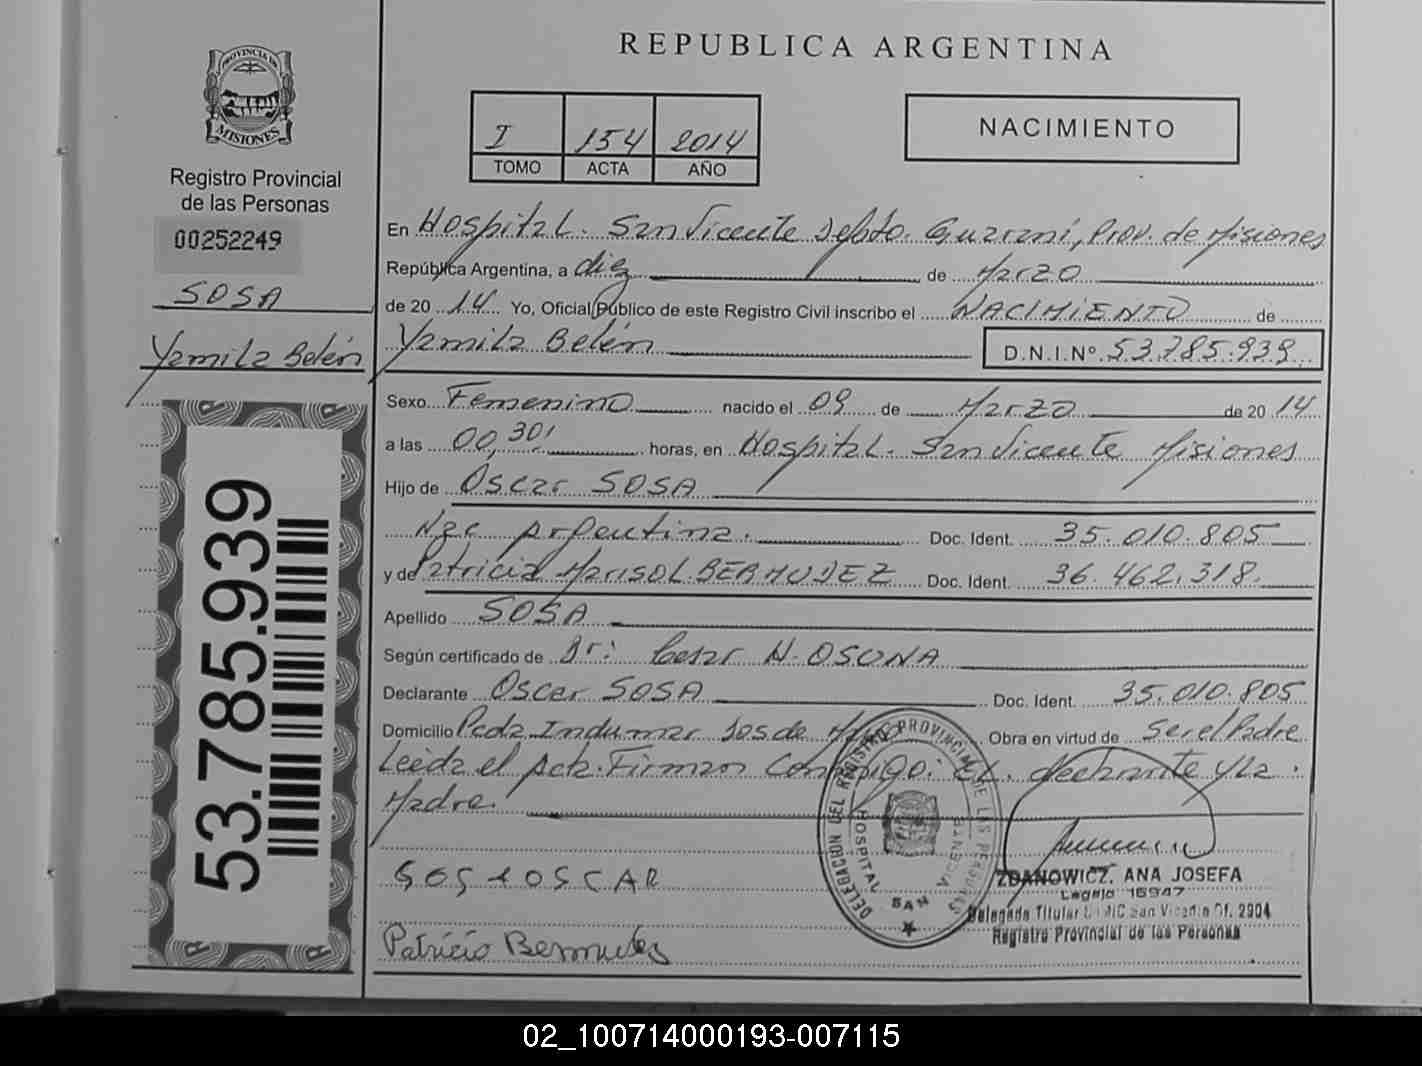 REPUBLICA ARGENTINA
PROVINCIA DE
MISIONES
Registro Provincial
de las Personas
00252249
SOSA
Yamila Belén
53.785.939
I 154 2014
TOMO ACTA AÑO
NACIMIENTO
En Hospital. San Vicente Depto. Guaraní, Prov. de Misiones
República Argentina, a diez de Marzo
de 20 14 Yo, Oficial Público de este Registro Civil inscribo el NACIMIENTO de
Yamila Belén D.N.I.Nº 53.785.939
Sexo Femenino nacido el 09 de Marzo de 20 14
a las 00,30' horas, en Hospital. San Vicente Misiones
Hijo de Oscar SOSA
Nac Argentina. Doc. Ident. 35.010.805
y de Patricia Marisol BERMUDEZ Doc. Ident. 36.462.318
Apellido SOSA
Según certificado de Dr: Cesar H. OSUNA
Declarante Oscar SOSA Doc. Ident. 35.010.805
Domicilio Pcda Indumar Obra en virtud de ser el Padre
Leida el Acta. Firman Conmigo: EL declarante y la
Madre.
SOSA OSCAR
Patricia Bermudez
DELEGACION DEL REGISTRO PROVINCIAL DE LAS PERSONAS
HOSPITAL SAN VICENTE
ZDANOWICZ, ANA JOSEFA
Legajo 16947
Delegada Titular San Vicente Of. 2904
Registro Provincial de las Personas
02_100714000193-007115